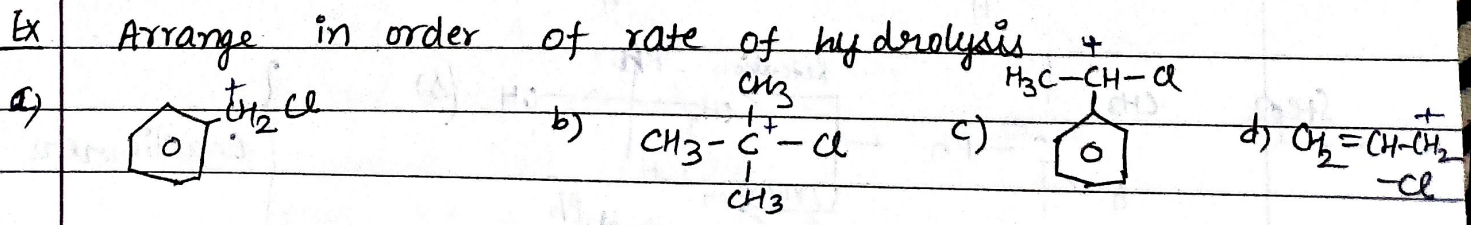 Ex Arrange in order of rate of hydrolysis
a) +CH2 Cl b) CH3-C+-Cl CH3 CH3 c) H3C-CH-Cl + d) CH2=CH-CH2 + -Cl